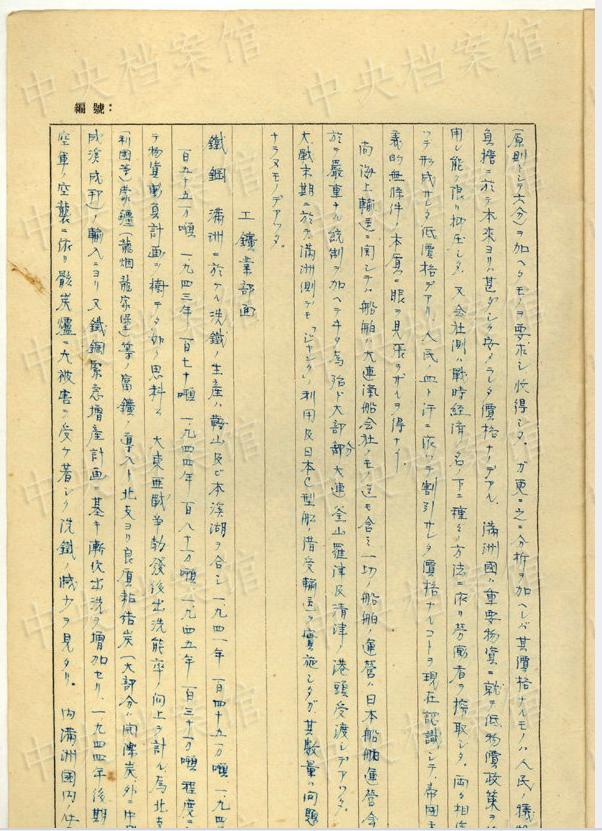 編號：
(原則トシテ六分)ヲ加ヘタモノヲ要求シ收得シタ。ガ更ニ之ニ分析ヲ加ヘレバ其價格ナルモノハ人民ノ犧
負擔ニ於テ本來ヨリハ甚ダシク安メラレタ價格ナノデアル。滿洲國ハ重要物資ニ就テ低物價政策ヲ
用シ能フ限リ抑圧シタ。又会社側ハ戰時経済ノ名ノ下ニ種々ノ方法ニ依リ労働者ヲ搾取シタ。両々相
ッテ形成サレタ低價格デアリ、人民ノ血ト汗ニ依ッテ割引サレタ價格ナルコトヲ現在認識シテ、帝国主
義的無條件ノ本質ニ眼ヲ見張ラザルヲ得ナイ。
尚海上輸送ニ関シテハ船舶ハ大連汽船会社ノモノ迄モ含ミ一切ノ船舶ノ運営ハ日本船舶運営会
於テ嚴重ナル統制ヲ加ヘテヰタ為殆ド大部分ハ大連釜山羅津及清津ノ港頭受渡シデアッタ。
大戰末期ニ於テ滿洲側デモ「ジャンク」利用及日本C型船ノ借受輸送ヲ實施シタガ、其数量ハ問題
ナラヌモノデアッタ。
工鑛業部面
鐵鋼 滿洲ニ於ケル洗鐵ノ生産ハ鞍山及ビ本溪湖ヲ合シ一九四一年 百四十五万噸 一九四
百五十五万噸 一九四三年 百七十万噸 一九四四年 百八十万噸 一九四五年 百三十万噸 程度ニ
テ物資動員計画ヲ樹テタ如ク思料ス 大東亜戰爭勃發後出洗能率ノ向上ヲ計ル為北支
(利國等)蒙疆(龍烟龍家堡)等ノ富鑛ノ導入ト北支ヨリ良質粘結炭(大部分ハ開灤炭外ニ中
威溪成邦)ノ輸入ニヨリ又鐵鋼緊急増産計画ニ基キ漸次出洗ヲ増加セリ、一九四四年後期
空軍ノ空襲ニ依リ骸炭爐ニ大被害ヲ受ケ著シク洗鐵ノ減少ヲ見タリ。 内滿洲国内ノ
中央档案馆